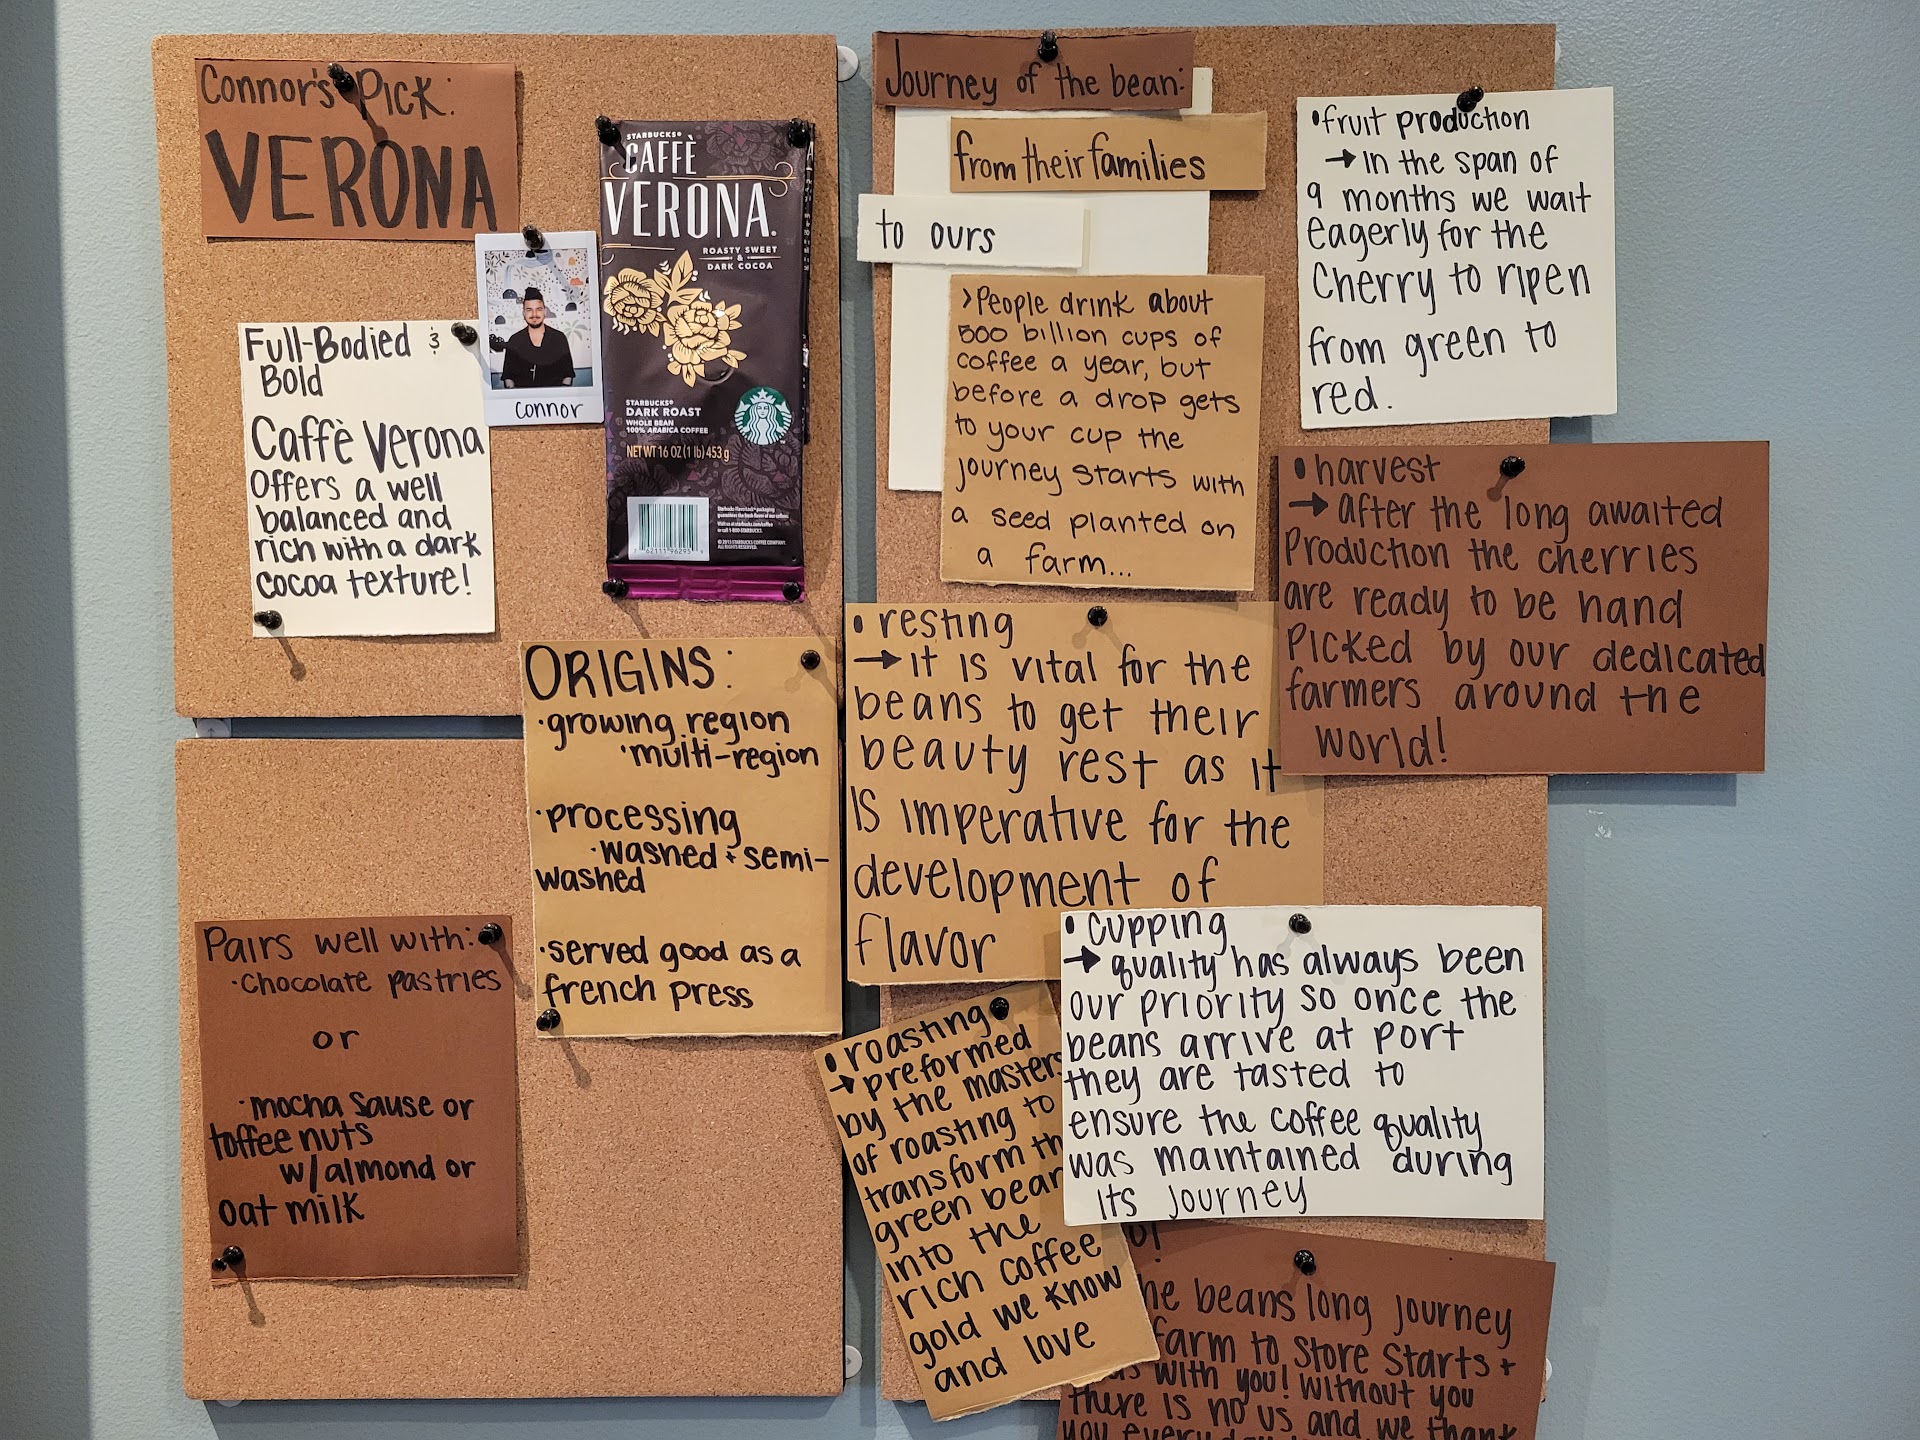 Connor's Pick:
VERONA
STARBUCKS®
CAFFÈ
VERONA.
ROASTY SWEET
&
DARK COCOA
STARBUCKS®
DARK ROAST
WHOLE BEAN
100% ARABICA COFFEE
NET WT 16 OZ (1 lb) 453 g
Connor
Full-Bodied &
Bold
Caffè Verona
Offers a well
balanced and
rich with a dark
cocoa texture!
ORIGINS:
·growing region
·multi-region
·processing
·washed + semi-
washed
·served good as a
french press
Pairs well with:
·Chocolate pastries
or
·mocha sause or
toffee nuts
w/almond or
oat milk
Journey of the bean:
from their families
to ours
>People drink about
500 billion cups of
coffee a year, but
before a drop gets
to your cup the
journey starts with
a seed planted on
a farm...
•fruit production
→ In the span of
9 months we wait
eagerly for the
Cherry to ripen
from green to
red.
•harvest
→ after the long awaited
Production the cherries
are ready to be hand
Picked by our dedicated
farmers around the
world!
•resting
→ it is vital for the
beans to get their
beauty rest as it
is imperative for the
development of
flavor
•cupping
→ quality has always been
our priority so once the
beans arrive at port
they are tasted to
ensure the coffee quality
was maintained during
its journey
•roasting
→ preformed
by the masters
of roasting to
transform
green
into the
rich coffee
gold we know
and love
beans long journey
farm to store starts +
with you! Without you
there is no us and we thank
you every day